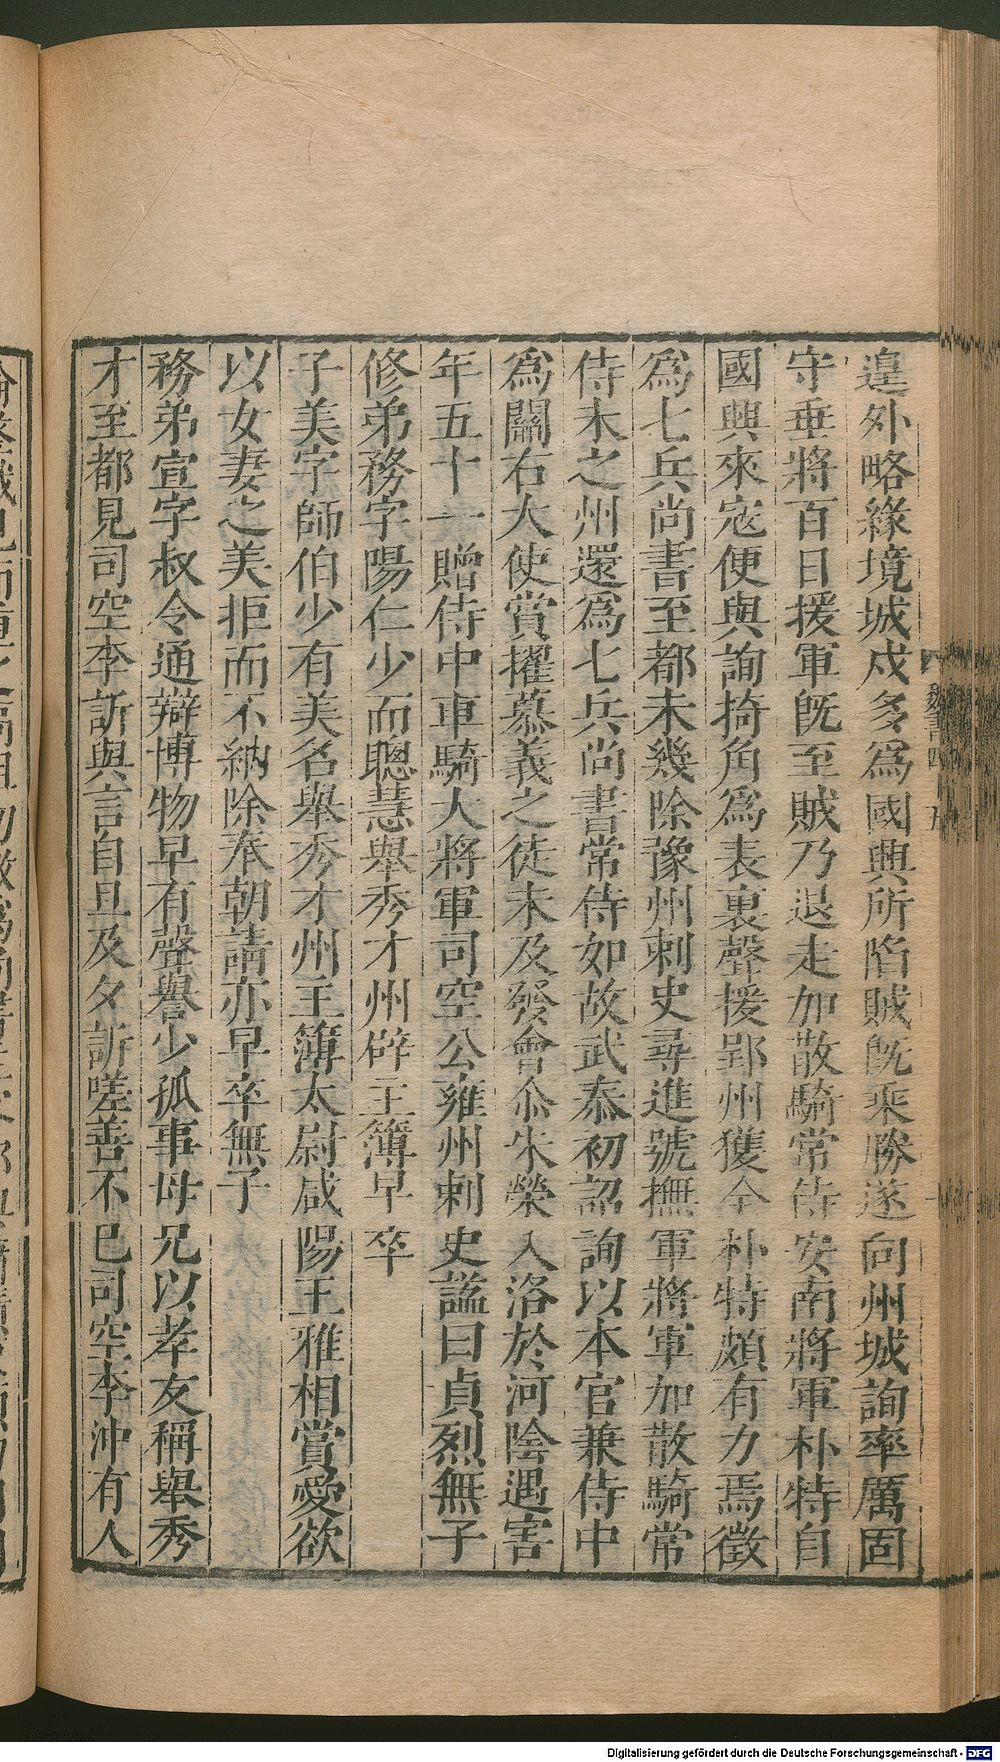 遑外略緣境城戍多爲國興所陷賊旣乘勝遂向州城詢率厲固
守垂將百日援軍旣至賊乃退走加散騎常侍安南將軍朴特自
國興來寇便與詢掎角爲表裏聲援郢州獲全朴特頗有力焉徵
爲七兵尚書至都未幾除豫州刺史尋進號撫軍將軍加散騎常
侍未之州還爲七兵尚書常侍如故武泰初詔詢以本官兼侍中
爲關右大使賞擢慕義之徒未及發會尒朱榮入洛於河陰遇害
年五十一贈侍中車騎大將軍司空公雍州刺史謚曰貞烈無子
修弟務字陽仁少而聰慧舉秀才州辟主簿早卒
子美字師伯少有美名舉秀才州主簿太尉咸陽王雅相賞愛欲
以女妻之美拒而不納除奉朝請亦早卒無子
務弟宣字叔令通辯博物早有聲譽少孤事母兄以孝友稱舉秀
才至都見司空李訢與言自旦及夕訢嗟善不已司空李沖有人
魏書四 五
Digitalisierung gefördert durch die Deutsche Forschungsgemeinschaft - DFG